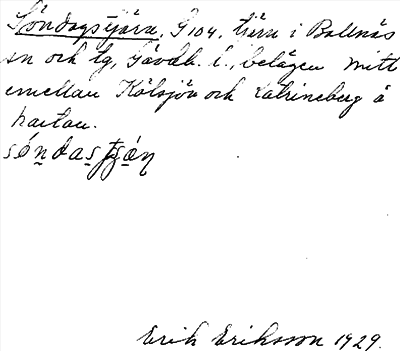 Söndagstjärn, G 104, tjärn i Bollnäs
sn och tg, Gävleb. l., belägen mitt
emellan Kölsjön och Katrineberg å
kartan.
söndastjän
Erik Eriksson 1929.